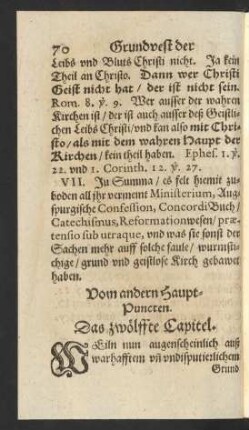 70 Grundvest der
Leibs vnd Bluts Christi nicht. Ja kein
Theil an Christo. Dann wer Christi
Geist nicht hat / der ist nicht sein.
Rom. 8. ℣. 9. Wer ausser der wahren
Kirchen ist / der ist auch ausser deß Geistli-
chen Leibs Christi / vnd kan also mit Chri-
sto / als mit dem wahren Haupt der
Kirchen / kein theil haben. Ephes. 1. ℣.
22. vnd 1. Corinth. 12. ℣. 27.
VII. In Summa / es felt hiemit zu-
boden all jhr vermeint Ministerium, Aug-
spurgische Confession, Concordi Buch /
Catechismus, Reformationwesen / præ-
tensio sub utraque, vnd was sie sonst der
Sachen mehr auff solche faule / wurmsti-
chige / grund vnd geistlose Kirch gebawet
haben.
Vom andern Haupt-
Puncten.
Das zwölffte Capitel.
WEiln nun augenscheinlich auß
warhafftem vñ vndisputierlichem
Grund